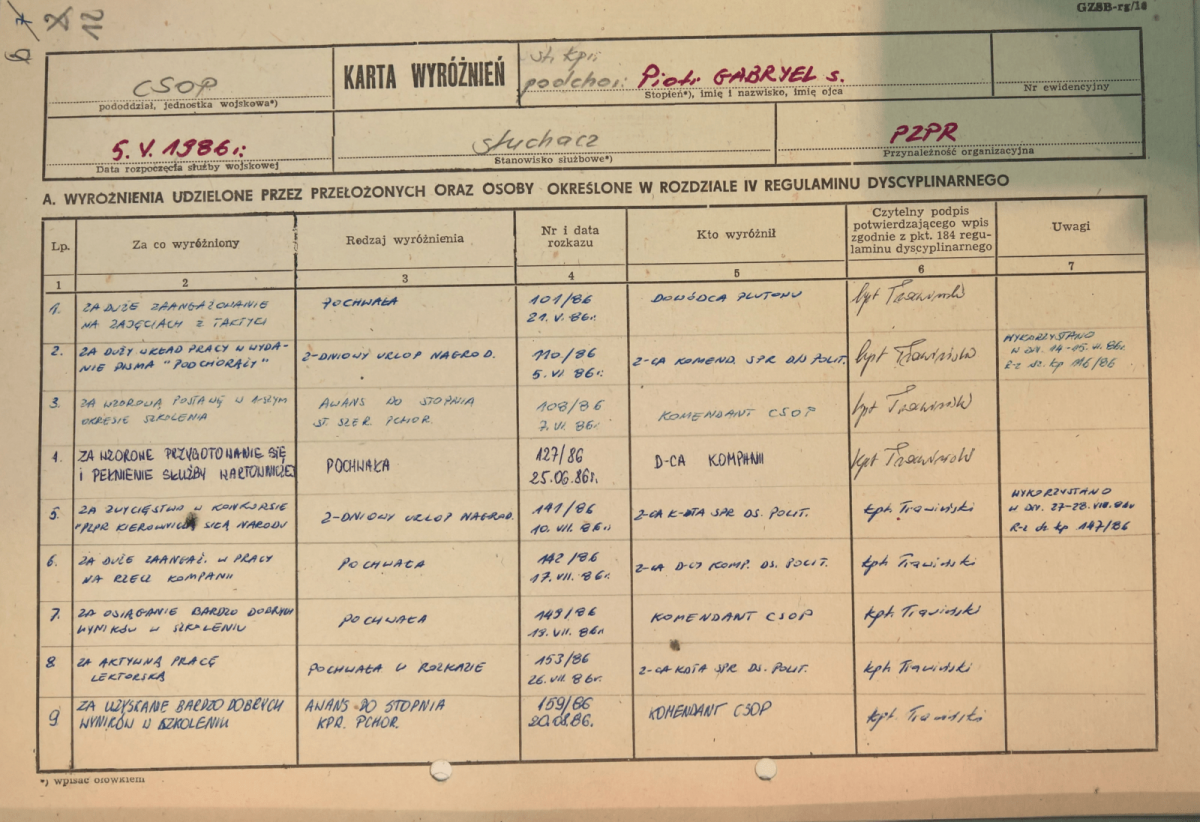 GZSB-rg/16
7
12
CSOP
pododdział, jednostka wojskowa*)
KARTA WYRÓŻNIEŃ
st. kpr.
podchor. Piotr GABRYEL s.
Stopień*), imię i nazwisko, imię ojca
Nr ewidencyjny
5. V. 1986r.
Data rozpoczęcia służby wojskowej
słuchacz
Stanowisko służbowe*)
PZPR
Przynależność organizacyjna
A. WYRÓŻNIENIA UDZIELONE PRZEZ PRZEŁOŻONYCH ORAZ OSOBY OKREŚLONE W ROZDZIALE IV REGULAMINU DYSCYPLINARNEGO
Lp.
Za co wyróżniony
Rodzaj wyróżnienia
Nr i data
rozkazu
Kto wyróżnił
Czytelny podpis
potwierdzającego wpis
zgodnie z pkt. 184 regu-
laminu dyscyplinarnego
Uwagi
1 2 3 4 5 6 7
1. ZA DUŻE ZAANGAŻOWANIE POCHWAŁA 101/86 DOWÓDCA PLUTONU kpt Trawiński
NA ZAJĘCIACH Z TAKTYKI 21. V. 86r.
2. ZA DUŻY WKŁAD PRACY W WYDA- 2-DNIOWY URLOP NAGROD. 110/86 Z-CA KOMEND. SPR DS POLIT. kpt Trawiński WYKORZYSTANO
NIE PISMA "PODCHORĄŻY" 5. VI 86r. W DN. 14-15. VI. 86r.
R-z d. kp 116/86
3. ZA WZOROWĄ POSTAWĘ W 1-SZYM AWANS DO STOPNIA 108/86 KOMENDANT CSOP kpt Trawiński
OKRESIE SZKOLENIA ST. SZER. PCHOR. 7. VI. 86r.
4. ZA WZOROWE PRZYGOTOWANIE SIĘ POCHWAŁA 127/86 D-CA KOMPANII kpt Trawiński
I PEŁNIENIE SŁUŻBY WARTOWNICZEJ 25.06.86r.
5. ZA ZWYCIĘSTWO W KONKURSIE 2-DNIOWY URLOP NAGROD. 141/86 Z-CA K-DTA SPR DS. POLIT. kpt. Trawiński WYKORZYSTANO
"PZPR KIEROWNICZĄ SIŁĄ NARODU 10. VII. 86r. W DN. 27-28. VII. 86r
R-z d. kp 147/86
6. ZA DUŻE ZAANGAŻ. W PRACY POCHWAŁA 142/86 Z-CA D-CY KOMP. DS. POLIT. kpt. Trawiński
NA RZECZ KOMPANII 17. VII. 86r.
7. ZA OSIĄGANIE BARDZO DOBRYCH POCHWAŁA 149/86 KOMENDANT CSOP kpt. Trawiński
WYNIKÓW W SZKOLENIU 19. VII. 86r.
8 ZA AKTYWNĄ PRACĘ POCHWAŁA W ROZKAZIE 153/86 Z-CA KDTA SPR DS. POLIT. kpt. Trawiński
LEKTORSKĄ 26. VII. 86r.
9 ZA UZYSKANIE BARDZO DOBRYCH AWANS DO STOPNIA 159/86 KOMENDANT CSOP kpt. Trawiński
WYNIKÓW W SZKOLENIU KPR. PCHOR. 20.08.86.
*) wpisać ołówkiem